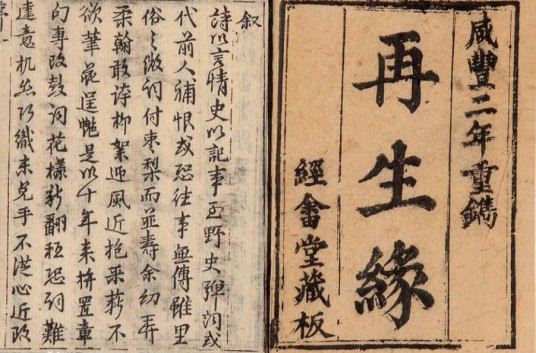 咸豐二年重鐫
再生緣
經畬堂藏板
叙
詩以言情史以記事至野史彈詞或
代前人補恨或恐往事無傳雖里
俗之微詞付棗梨而並壽余幼弄
柔翰敢誇柳絮迎風近抱采薪不
欲筆花逞艷是以十年来拚置章
句專改鼓詞花樣新翻秖恐詞難
達意机丝巧織未免手不從心近改